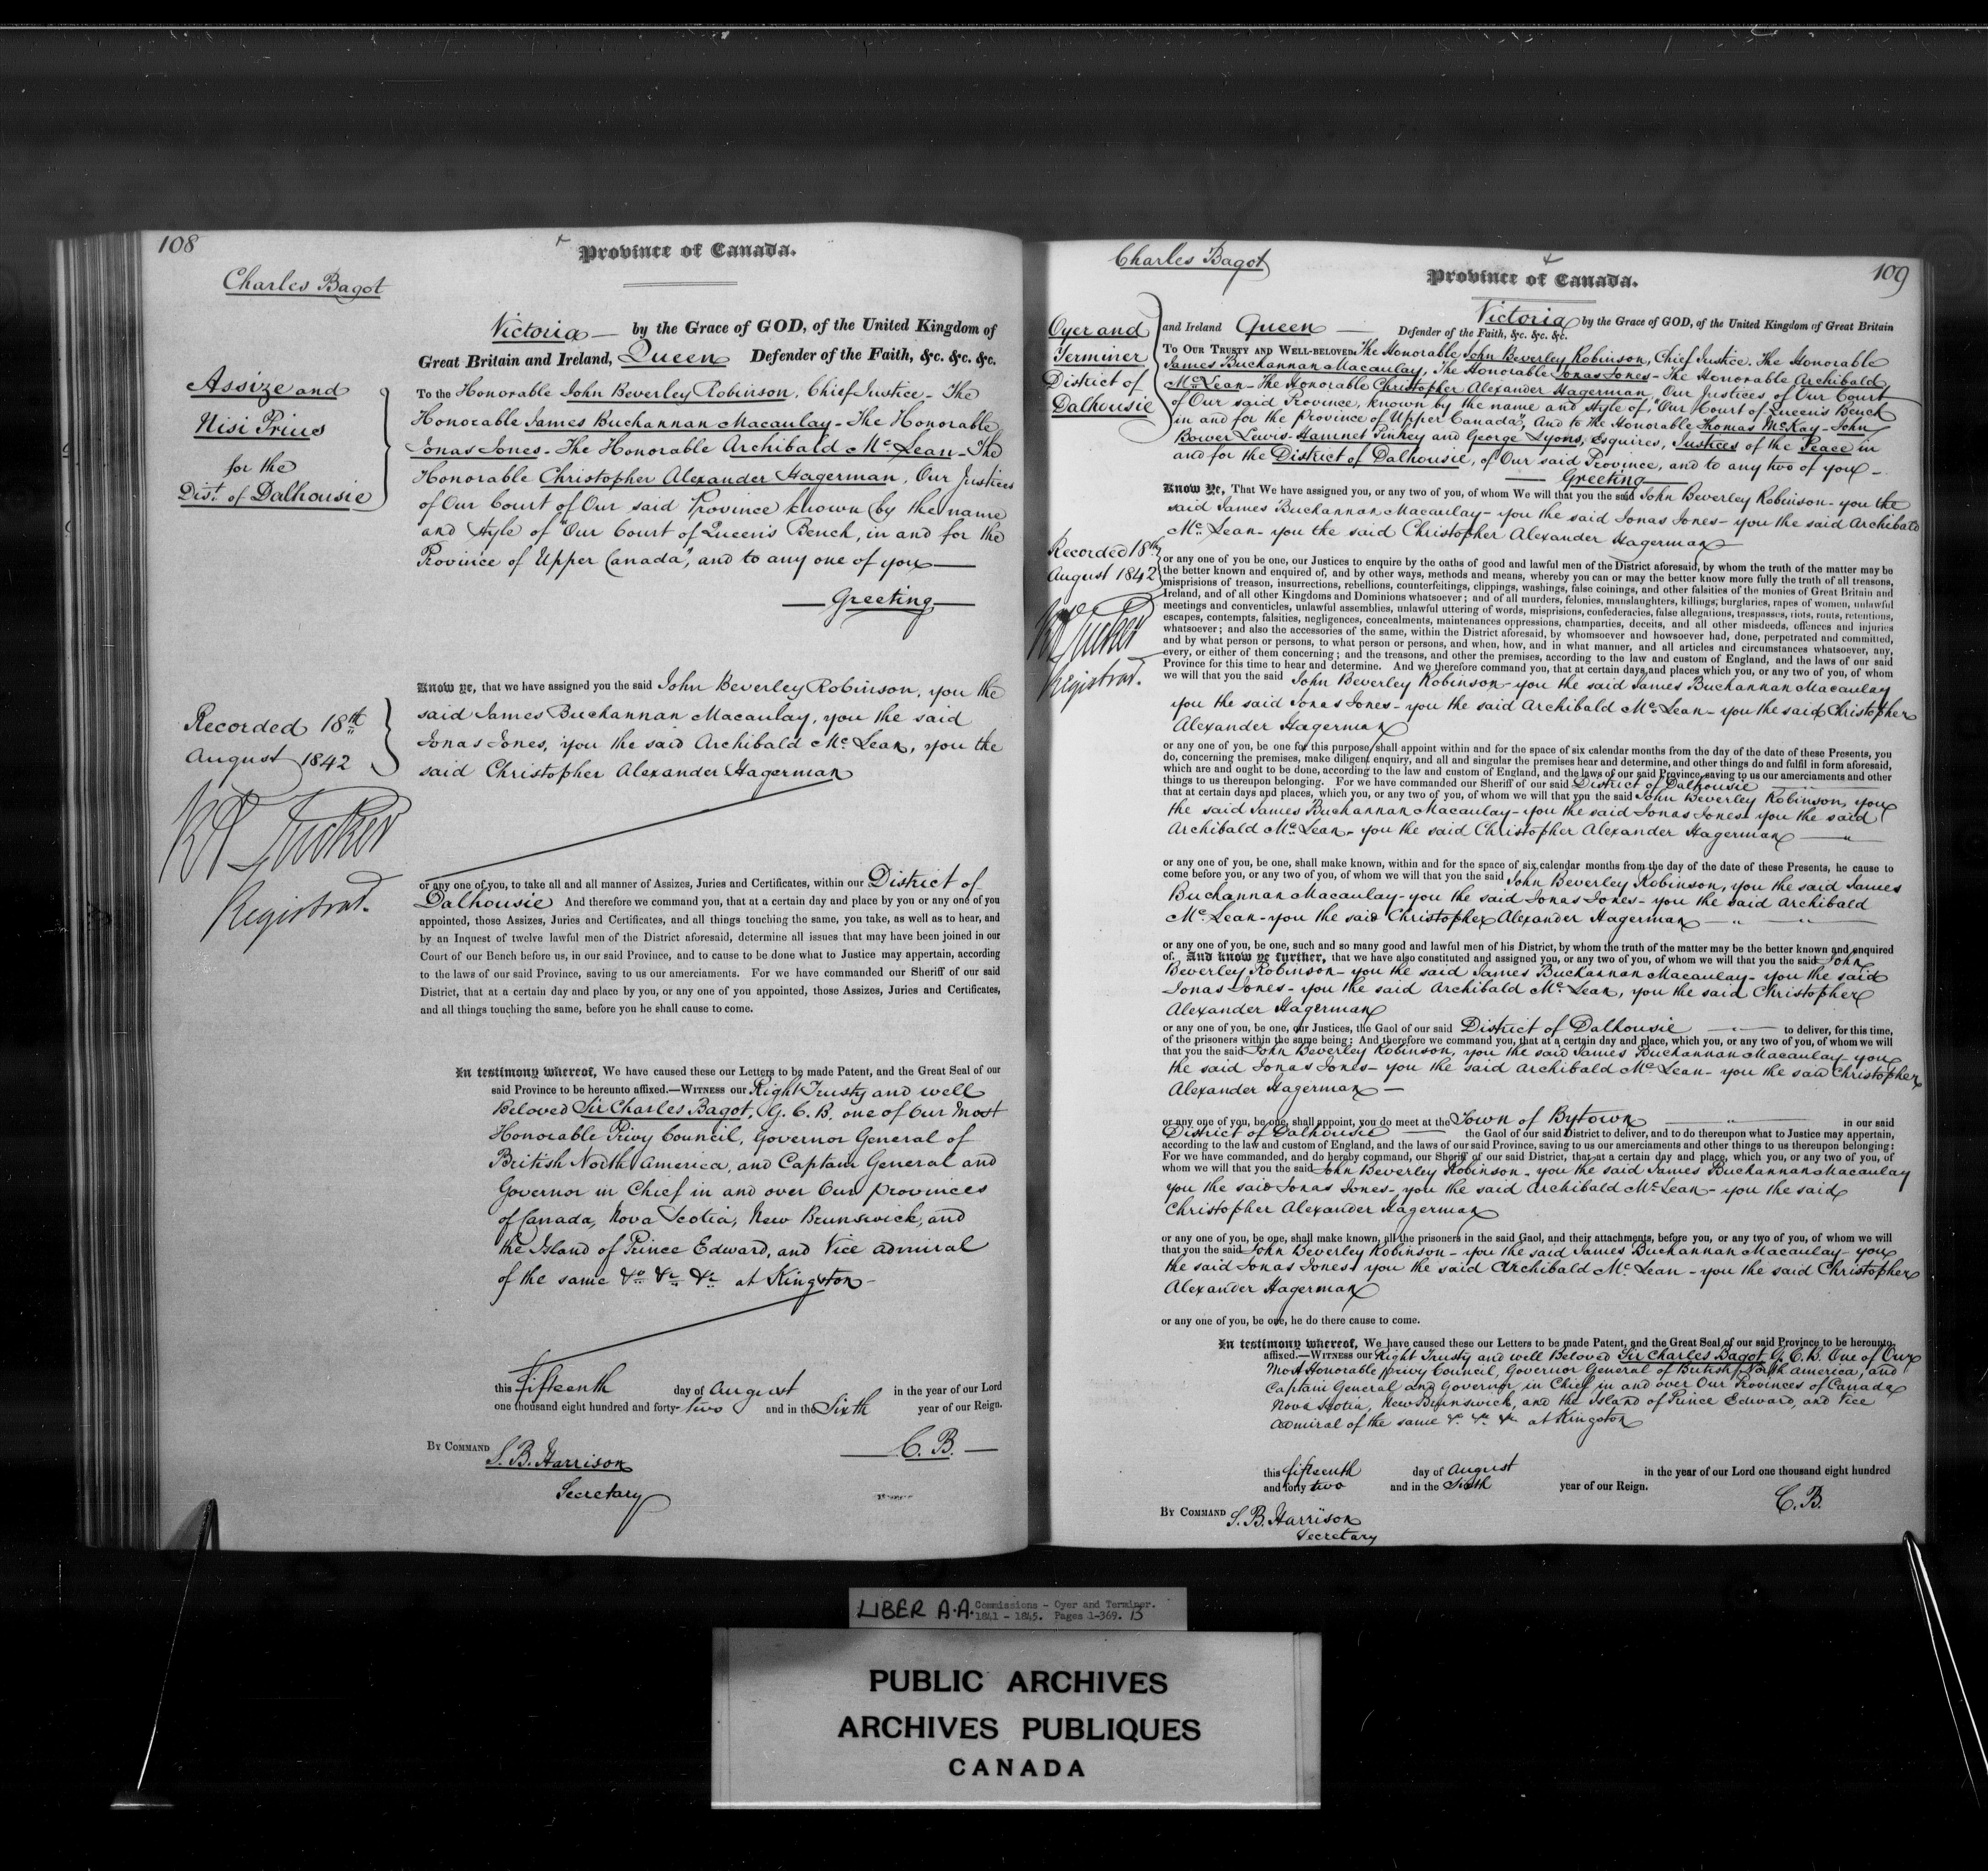 108
Province of Canada.
Charles Bagot
Victoria — by the Grace of GOD, of the United Kingdom of
Great Britain and Ireland, Queen Defender of the Faith, &c. &c. &c.
Assize and
Nisi Prius
for the
Dist. of Dalhousie
To the Honorable John Beverley Robinson, Chief Justice - The
Honorable James Buchannan Macaulay - The Honorable
Jonas Jones - The Honorable Archibald Mc Lean - The
Honorable Christopher Alexander Hagerman, Our Justices
of Our Court of Our said Province known by the name
and style of "Our Court of Queen's Bench, in and for the
Province of Upper Canada", and to any one of you —
— Greeting —
Know ye, that we have assigned you the said John Beverley Robinson, you the
said James Buchannan Macaulay, you the said
Jonas Jones, you the said Archibald Mc Lean, you the
said Christopher Alexander Hagerman
Recorded 18th
August 1842
R A Tucker
Registrar.
or any one of you, to take all and all manner of Assizes, Juries and Certificates, within our District of
Dalhousie And therefore we command you, that at a certain day and place by you or any one of you
appointed, those Assizes, Juries and Certificates, and all things touching the same, you take, as well as to hear, and
by an Inquest of twelve lawful men of the District aforesaid, determine all issues that may have been joined in our
Court of our Bench before us, in our said Province, and to cause to be done what to Justice may appertain, according
to the laws of our said Province, saving to us our amerciaments. For we have commanded our Sheriff of our said
District, that at a certain day and place by you, or any one of you appointed, those Assizes, Juries and Certificates,
and all things touching the same, before you he shall cause to come.
In testimony whereof, We have caused these our Letters to be made Patent, and the Great Seal of our
said Province to be hereunto affixed.—WITNESS our Right Trusty and well
Beloved Sir Charles Bagot, G. C. B. one of Our Most
Honorable Privy Council, Governor General of
British North America, and Captain General and
Governor in Chief in and over Our Provinces
of Canada, Nova Scotia, New Brunswick, and
the Island of Prince Edward, and Vice Admiral
of the same &c &c &c at Kingston -
this fifteenth day of August in the year of our Lord
one thousand eight hundred and forty-two and in the Sixth year of our Reign.
BY COMMAND
S. B. Harrison
Secretary
— C. B. —
109
Charles Bagot
Province of Canada.
Victoria by the Grace of GOD, of the United Kingdom of Great Britain
and Ireland Queen — Defender of the Faith, &c. &c. &c.
Oyer and
Terminer
District of
Dalhousie
TO OUR TRUSTY AND WELL-BELOVED The Honorable John Beverley Robinson, Chief Justice. The Honorable
James Buchannan Macaulay, The Honorable Jonas Jones - The Honorable Archibald
Mc Lean - The Honorable Christopher Alexander Hagerman, Our Justices of Our Court
of Our said Province, known by the name and style of, "Our Court of Queen's Bench
in and for the Province of Upper Canada", And to the Honorable Thomas McKay - John
Bower Lewis - Hamnet Pinhey and George Lyons, Esquires, Justices of the Peace in
and for the District of Dalhousie, of Our said Province, and to any two of you -
— Greeting —
Know Ye, That We have assigned you, or any two of you, of whom We will that you the said John Beverley Robinson - you the
said James Buchannan Macaulay - you the said Jonas Jones - you the said Archibald
Mc Lean - you the said Christopher Alexander Hagerman —
Recorded 18th
August 1842
R A Tucker
Registrar.
or any one of you be one, our Justices to enquire by the oaths of good and lawful men of the District aforesaid, by whom the truth of the matter may be
the better known and enquired of, and by other ways, methods and means, whereby you can or may the better know more fully the truth of all treasons,
misprisions of treason, insurrections, rebellions, counterfeitings, clippings, washings, false coinings, and other falsities of the monies of Great Britain and
Ireland, and of all other Kingdoms and Dominions whatsoever; and of all murders, felonies, manslaughters, killings, burglaries, rapes of women, unlawful
meetings and conventicles, unlawful assemblies, unlawful uttering of words, misprisions, confederacies, false allegations, trespasses, riots, routs, retentions,
escapes, contempts, falsities, negligences, concealments, maintenances oppressions, champarties, deceits, and all other misdeeds, offences and injuries
whatsoever; and also the accessories of the same, within the District aforesaid, by whomsoever and howsoever had, done, perpetrated and committed,
and by what person or persons, to what person or persons, and when, how, and in what manner, and all articles and circumstances whatsoever, any,
every, or either of them concerning; and the treasons, and other the premises, according to the law and custom of England, and the laws of our said
Province for this time to hear and determine. And we therefore command you, that at certain days and places which you, or any two of you, of whom
we will that you the said John Beverley Robinson - you the said James Buchannan Macaulay
you the said Jonas Jones - you the said Archibald Mc Lean - you the said Christopher
Alexander Hagerman
or any one of you, be one for this purpose shall appoint within and for the space of six calendar months from the day of the date of these Presents, you
do, concerning the premises, make diligent enquiry, and all and singular the premises hear and determine, and other things do and fulfil in form aforesaid,
which are and ought to be done, according to the law and custom of England, and the laws of our said Province, saving to us our amerciaments and other
things to us thereupon belonging. For we have commanded our Sheriff of our said District of Dalhousie —
that at certain days and places, which you, or any two of you, of whom we will that you the said John Beverley Robinson, you
the said James Buchannan Macaulay - you the said Jonas Jones - you the said
Archibald Mc Lean - you the said Christopher Alexander Hagerman —
or any one of you, be one, shall make known, within and for the space of six calendar months from the day of the date of these Presents, he cause to
come before you, or any two of you, of whom we will that you the said John Beverley Robinson, you the said James
Buchannan Macaulay - you the said Jonas Jones - you the said Archibald
Mc Lean - you the said Christopher Alexander Hagerman — " — " —
or any one of you, be one, such and so many good and lawful men of his District, by whom the truth of the matter may be the better known and enquired
of. And know ye further, that we have also constituted and assigned you, or any two of you, of whom we will that you the said John
Beverley Robinson - you the said James Buchannan Macaulay - you the said
Jonas Jones - you the said Archibald Mc Lean, you the said Christopher
Alexander Hagerman
or any one of you, be one, our Justices, the Gaol of our said District of Dalhousie — " — to deliver, for this time,
of the prisoners within the same being; And therefore we command you, that at a certain day and place, which you, or any two of you, of whom we will
that you the said John Beverley Robinson, you the said James Buchannan Macaulay - you
the said Jonas Jones - you the said Archibald Mc Lean - you the said Christopher
Alexander Hagerman —
or any one of you, be one, shall appoint, you do meet at the Town of Bytown — " — in our said
District of Dalhousie the Gaol of our said District to deliver, and to do thereupon what to Justice may appertain,
according to the law and custom of England, and the laws of our said Province, saving to us our amerciaments and other things to us thereupon belonging:
For we have commanded, and do hereby command, our Sheriff of our said District, that at a certain day and place, which you, or any two of you, of
whom we will that you the said John Beverley Robinson - you the said James Buchannan Macaulay
you the said Jonas Jones - you the said Archibald Mc Lean - you the said
Christopher Alexander Hagerman
or any one of you, be one, shall make known, all the prisoners in the said Gaol, and their attachments, before you, or any two of you, of whom we will
that you the said John Beverley Robinson - you the said James Buchannan Macaulay - you
the said Jonas Jones - you the said Archibald Mc Lean - you the said Christopher
Alexander Hagerman
or any one of you, be one, he do there cause to come.
In testimony whereof, We have caused these our Letters to be made Patent, and the Great Seal of our said Province to be hereunto
affixed.—WITNESS our Right Trusty and well Beloved Sir Charles Bagot G. C. B. One of Our
Most Honorable Privy Council, Governor General of British North America, and
Captain General and Governor in Chief in and over Our Provinces of Canada
Nova Scotia, New Brunswick, and the Island of Prince Edward, and Vice
Admiral of the same &c &c &c at Kingston
this fifteenth day of August in the year of our Lord one thousand eight hundred
and forty two and in the Sixth year of our Reign.
C. B.
BY COMMAND S. B. Harrison
Secretary
LIBER A.A. Commissions - Oyer and Terminer.
1841 - 1845. Pages 1-369. 13
PUBLIC ARCHIVES
ARCHIVES PUBLIQUES
CANADA